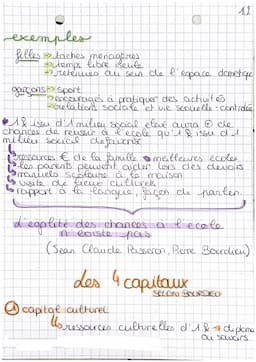 12
exemples
filles ⇒ tâches ménagères
⇒ temps libre seule
⇒ retenues au sein de l'espace domestique
garçons ⇒ sport
⇒ encouragés à pratiquer des activités
⇒ relations sociale et vie sexuelle - contrôlée
1 & issu d'1 milieu social élevé aura ⊕ de
chances de réussir à l'école qu'1 & issu d'1
milieu social défavorisé
ressources € de la famille → meilleures écoles
les parents peuvent aider lors des devoirs
manuels scolaire à la maison
visite de lieux culturels
rapport à la langue, façon de parler.
L'égalité des chances à l'école
n'existe pas
(Jean Claude Passeron, Pierre Bourdieu)
des 4 capitaux
SELON BOURDIEU
① capital culturel
↳ ressources culturelles d'1 & → diplôme
ou savoirs